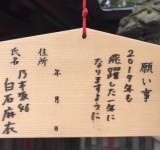 願い事
2019年も
飛躍した一年に
なりますように
年 月 日
住所
乃木坂46
氏名
白石麻衣